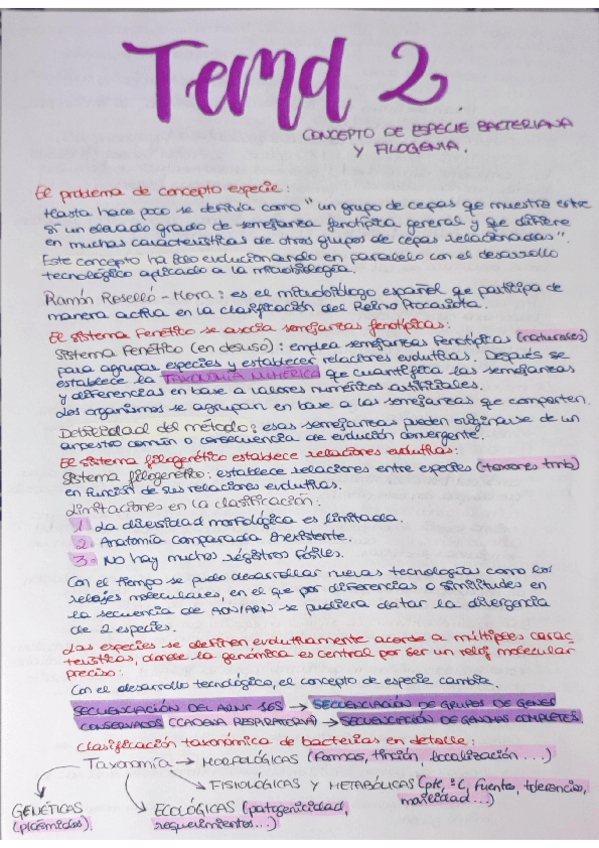 Tema 2
CONCEPTO DE ESPECIE BACTERIANA
Y FILOGENIA.
El problema de concepto especie:
Hasta hace poco se definía como "un grupo de cepas que muestra entre
sí un elevado grado de semejanza fenotípica general y que difiere
en muchas características de otros grupos de cepas relacionadas".
Este concepto ha ido evolucionando en paralelo con el desarrollo
tecnológico aplicado a la microbiología.
Ramón Roselló-Mora: es el microbiólogo español que participa de
manera activa en la clasificación del Reino Procariota.
El sistema Fenético se asocia semejanzas fenotípicas:
Sistema Fenético (en desuso): emplea semejanzas Fenotípicas (naturales)
para agrupar especies y establecer relaciones evolutivas. Después se
establece la TAXONOMÍA NUMÉRICA que cuantifica las semejanzas
y diferencias en base a valores numéricos artificiales.
Los organismos se agrupan en base a las semejanzas que comparten.
Debilidad del método: esas semejanzas pueden originarse de un
ancestro común o consecuencia de evolución convergente.
El sistema filogenético establece relaciones evolutivas:
Sistema filogenético: establece relaciones entre especies (taxones tmb)
en función de sus relaciones evolutivas.
Limitaciones en la clasificación:
1. La diversidad morfológica es limitada.
2. Anatomía comparada inexistente.
3. No hay muchos registros fósiles.
Con el tiempo se pudo desarrollar nuevas tecnologías como los
relojes moleculares, en el que por diferencias o similitudes en
la secuencia de ADN/ARN se pudiera datar la divergencia
de 2 especies.
Las especies se definen evolutivamente acorde a múltiples carac
terísticas, donde la genómica es central por ser un reloj molecular
preciso:
Con el desarrollo tecnológico, el concepto de especie cambia.
SECUENCIACIÓN DEL ARNr 16S → SECUENCIACIÓN DE GRUPOS DE GENES
CONSERVADOS (CADENA RESPIRATORIA) → SECUENCIACIÓN DE GENOMAS COMPLETOS.
Clasificación taxonómica de bacterias en detalle:
Taxonomía → MORFOLÓGICAS (Formas, tinción, localización...)
FISIOLÓGICAS Y METABÓLICAS (pH, ºC, fuentes, tolerancias,
movilidad...)
GENÉTICAS
(plásmidos).
ECOLÓGICAS (patogenicidad,
requerimientos...)